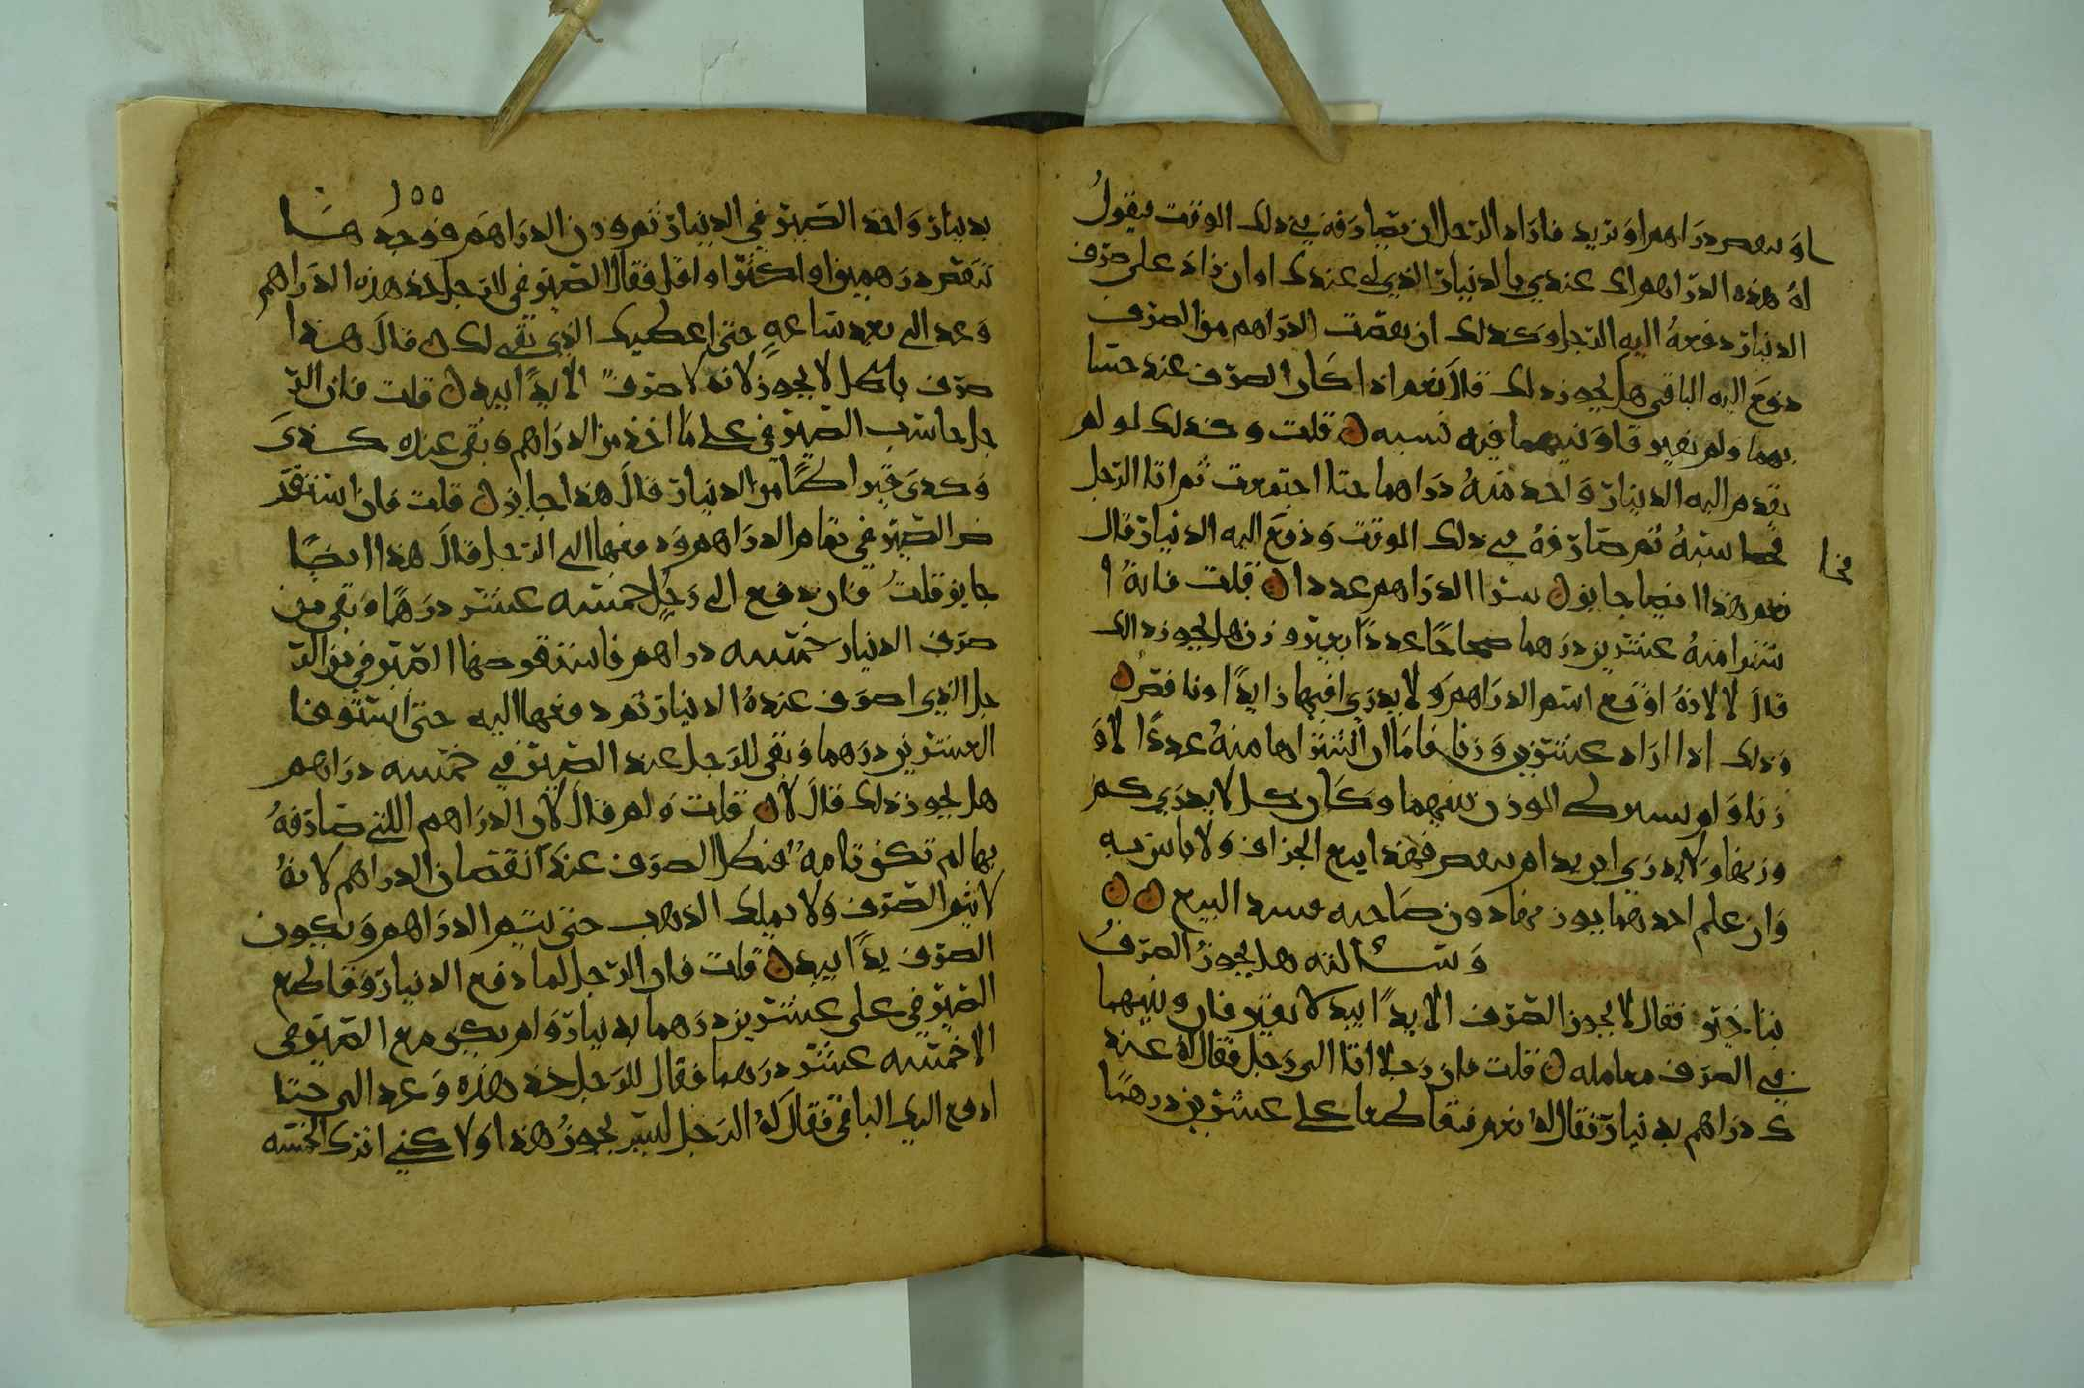 او ىىقص دراهم او تزيد فاراد الرجل ان يصارفه في ذلك الوقت يقول
له هذه الدراهم لك عندي بالدينار الذي لي عندك او ان زاد على صرف
الدينار دفعه اليه الرجل وكذلك ان نقصت الدراهم من الصرف
دفع اليه الباقي هل يجوز ذلك قال نعم اذا كان الصرف عند حسا
بهما ولم يفترقا وبينهما فيه نسيه ن قلت وكذلك لو لم
يقدم اليه الدينار واخذ منه دراهما حتا اجتمعت ثم اتا الرجل
فحاسبه ثم صارفه في ذلك الوقت ودفع اليه الدينار قال
نعم هذا ايضا جايز ن شرا الدراهم عددا ن قلت فانه ا
شترا منه عشرين درهما صحاحا عددا بغير وزن هل يجوز ذالك
قال لا لانه اوقع اسم الدراهم ولا يدري افيها زايدا او ناقص ن
وذلك اذا اراد عشرين وزنا فاما ان اشتراها منه عددا لا و
زنا ولم يسلك الوزن بينهما وكان كل لا يدري كم
وزنها ولا يدري ايزيد ام ينقص فهذا بيع الجزاف ولا باس به
وان علم احدهما بوزنها دون صاحبه فسد البيع ن ن
وسالته هل يجوز الصرف
بتاخير فقال لا يجوز الصرف الا يدا بيد لا يفترقان وبينهما
في الصرف معامله ن قلت فان رجلا اتا الى رجل فقال له عند
ك دراهم بدينار فقال له نعم فقاطعا على عشرين درهما
فحا
١٥٥
بدينار واخذ الصيرفي الدينار ثم وزن الدراهم فوجدها
تنقص درهمين او اكثر او اقل فقال الصيرفي للرجل خذ هذه الدراهم
وعد الى بعد ساعه حتى اعطيك الذي بقي لك ن قال هذا
صرف باطل لا يجوز لانه لا صرف الا يدا بيد ن قلت فان الر
جل حاسب الصيرفي على ما اخذ من الدراهم وبقي عنده كذى
وكذى قيراطا من الدينار قال هذا جايز ن قلت فان استقر
ض الصيرفي تمام الدراهم ودفعها الى الرجل قال هذا ايضا
جايز قلت فان دفع الى رجل خمسه عشر درهما وبقي من
صرف الدينار خمسه دراهم فاستقرضها الصيرفي من الر
جل الذي اصرف عنده الدينار ثم دفعها اليه حتى استوفا
العشرين درهما وبقي للرجل عند الصيرفي خمسه دراهم
هل يجوز ذلك قال لا ن قلت ولم قال لان الدراهم اللتي صارفه
بها لم تكن تامه فبطل الصرف عند نقصان الدراهم لانه
لا يتم الصرف ولا يملك الذهب حتى يتم الدراهم ويكون
الصرف يدا بيد ن قلت فان الرجل لما دفع الدينار وقاطع
الصيرفي على عشرين درهما بدينار ولم يكن مع الصيرفي
الا خمسه عشر درهما فقال للرجل خذ هذه وعد الي حتا
ادفع اليك الباقي فقال له الرجل ليس يجوز هذا ولا كني اترك الخمسه